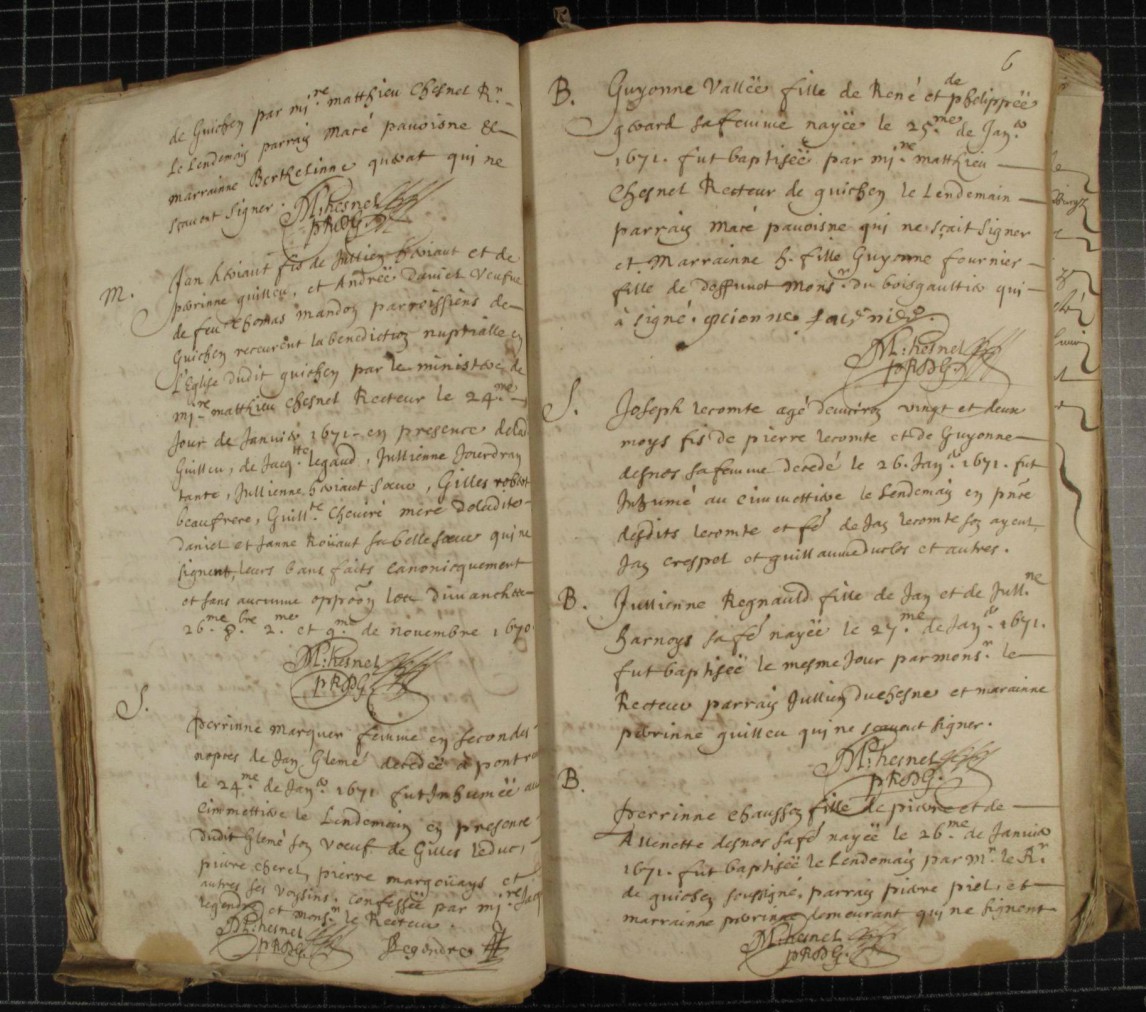 de Guichen par mi.re matthieu Chesnel R.r
le Lendemain parrain Macé pavoisne &
marrainne Berthelinne queat qui ne
scavent signer.
M: Chesnel
pRDG.
M.
Jan Roüaut fis de Jullien Roüaut et de
perrinne guilleu, et Andreë Daniel Veufve
de feu Thomas mandon parroissiens de
Guichen receurent la benediction nuptialle en
L'Eglise dudit guichen par le ministere de
mi.re matthieu Chesnel Recteur le 24.me
Jour de Janvier 1671. en presence de lad
Guilleu, de Jacq.tte legaud, Jullienne Jourdran
tante, Jullienne Roüaut sœur, Gilles robert
beaufrere, Guill.te Cheviré mere de ladite
Daniel et Janne Roüaut sa belle sœur qui ne
signent, leurs bans faits canonicquement
et sans aucunne opp̃on les dimanches
26.me 8.bre 2.me et 9.me de novembre 1670
M: Chesnel
pRDG
S.
perrinne marquer femme en secondes
nopces de Jan Glemé decedeë à pontr
le 24.me de Jan.er 1671. fut Inhumeë au
Cimmettiere le Lendemain en presence
dudit Glemé son voeuf de Gilles leduc,
pierre cherel, pierre margoüays et
autres ses voysins. confesseë par mi.re Jacq
legendre et mons.r le Recteur.
M: Chesnel
pRDG. Legendre
6
B. Guyonne Valleë fille de René et de phelippeë
gerard sa femme nayeë le 25.me de Jan.er
1671. fut baptiseë par mi.re matthieu
Chesnel Recteur de guichen le Lendemain
parrain Macé pavoisne qui ne sçait signer
et Marrainne h. fille Guyonne fournier
fille de deffunct Mons.r du boisgaultier qui
à signé. gvionne fournier
M: Chesnel
pRDG.
S.
Joseph lecomte agé denviron vingt et deux
moys fis de pierre lecomte et de Guyonne
desnos sa femme decedé le 26. Jan.er 1671. fut
Inhumé au cimmettiere le Lendemain en pn̄ce
desdits lecomte et fẽ de Jan lecomte son ayeul,
Jan crespel et guillaume duclos et autres.
B. Jullienne Regnauld fille de Jan et de Jull.ne
harnoys sa fẽ nayeë le 27.me de Jan.er 1671.
fut baptiseë le mesme Jour par mons.r le
Recteur parrain Jullien duchesne et marainne
perrinne guilleu qui ne scavent signer.
M: Chesnel
pRDG.
B.
perrinne chausson fille de pierre et de
Allenette desnos sa fẽ nayeë le 26.me de Janvier
1671. fut baptiseë le Lendemain par M.r le R.r
de guichen soussigné. parrain pierre piel, et
marrainne perrinne demeurant qui ne signent
M: Chesnel
pRDG.